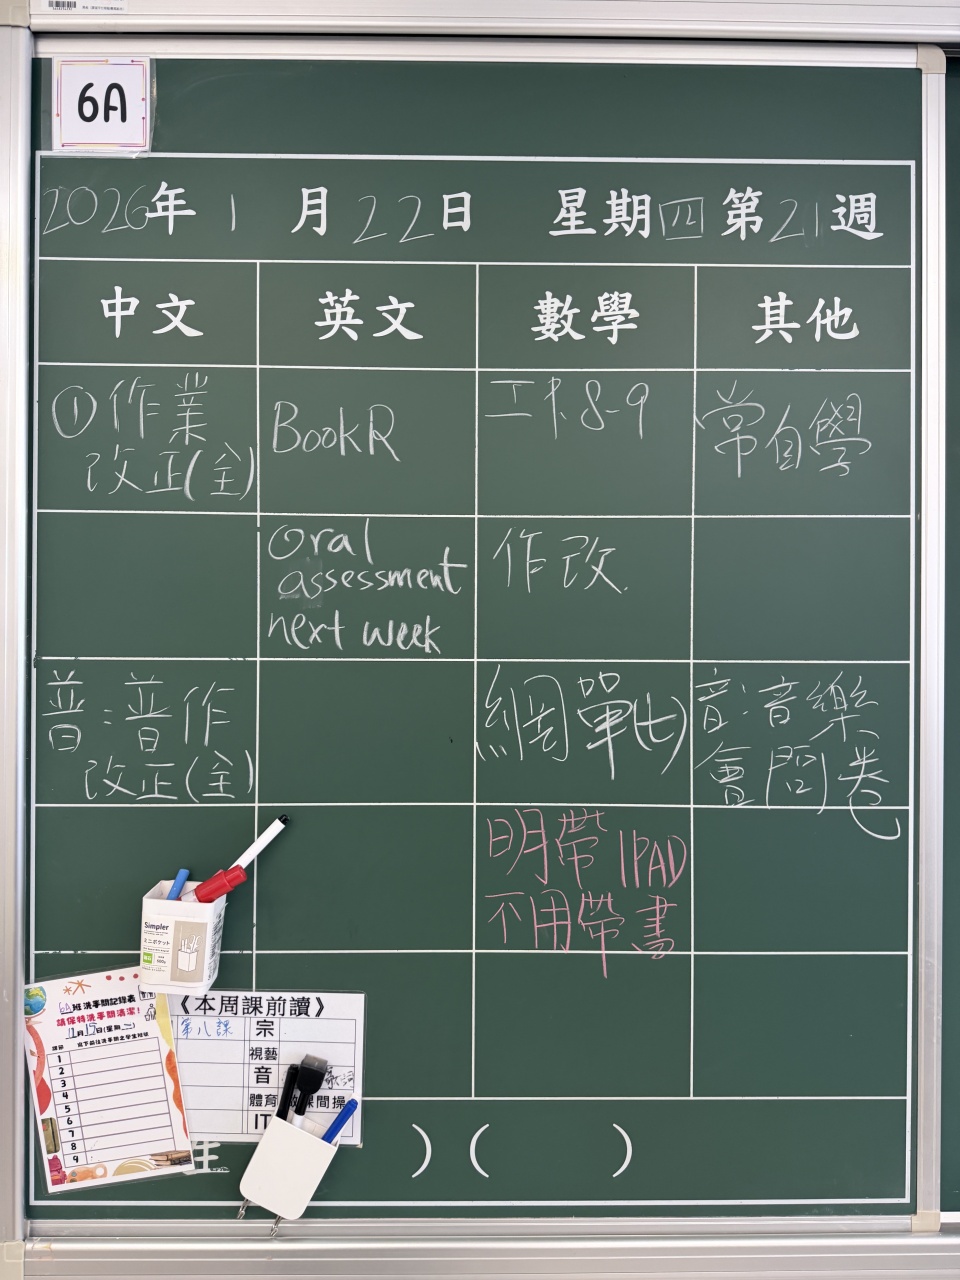 6A
2026年1月22日 星期四第21週
中文 英文 數學 其他
①作業
改正(全)
BookR
工P.8-9
常自學
Oral
assessment
next week
作改.
普:普作
改正(全)
網單(七)
音:音樂
會問卷
明帶IPAD
不用帶書
Simpler
ミニポケット
6A班洗手間記錄表
請保持洗手間清潔!
1
2
3
4
5
6
7
8
9
《本周課前讀》
第八課 宗
視藝
音
體育 課間操
IT
) ( )